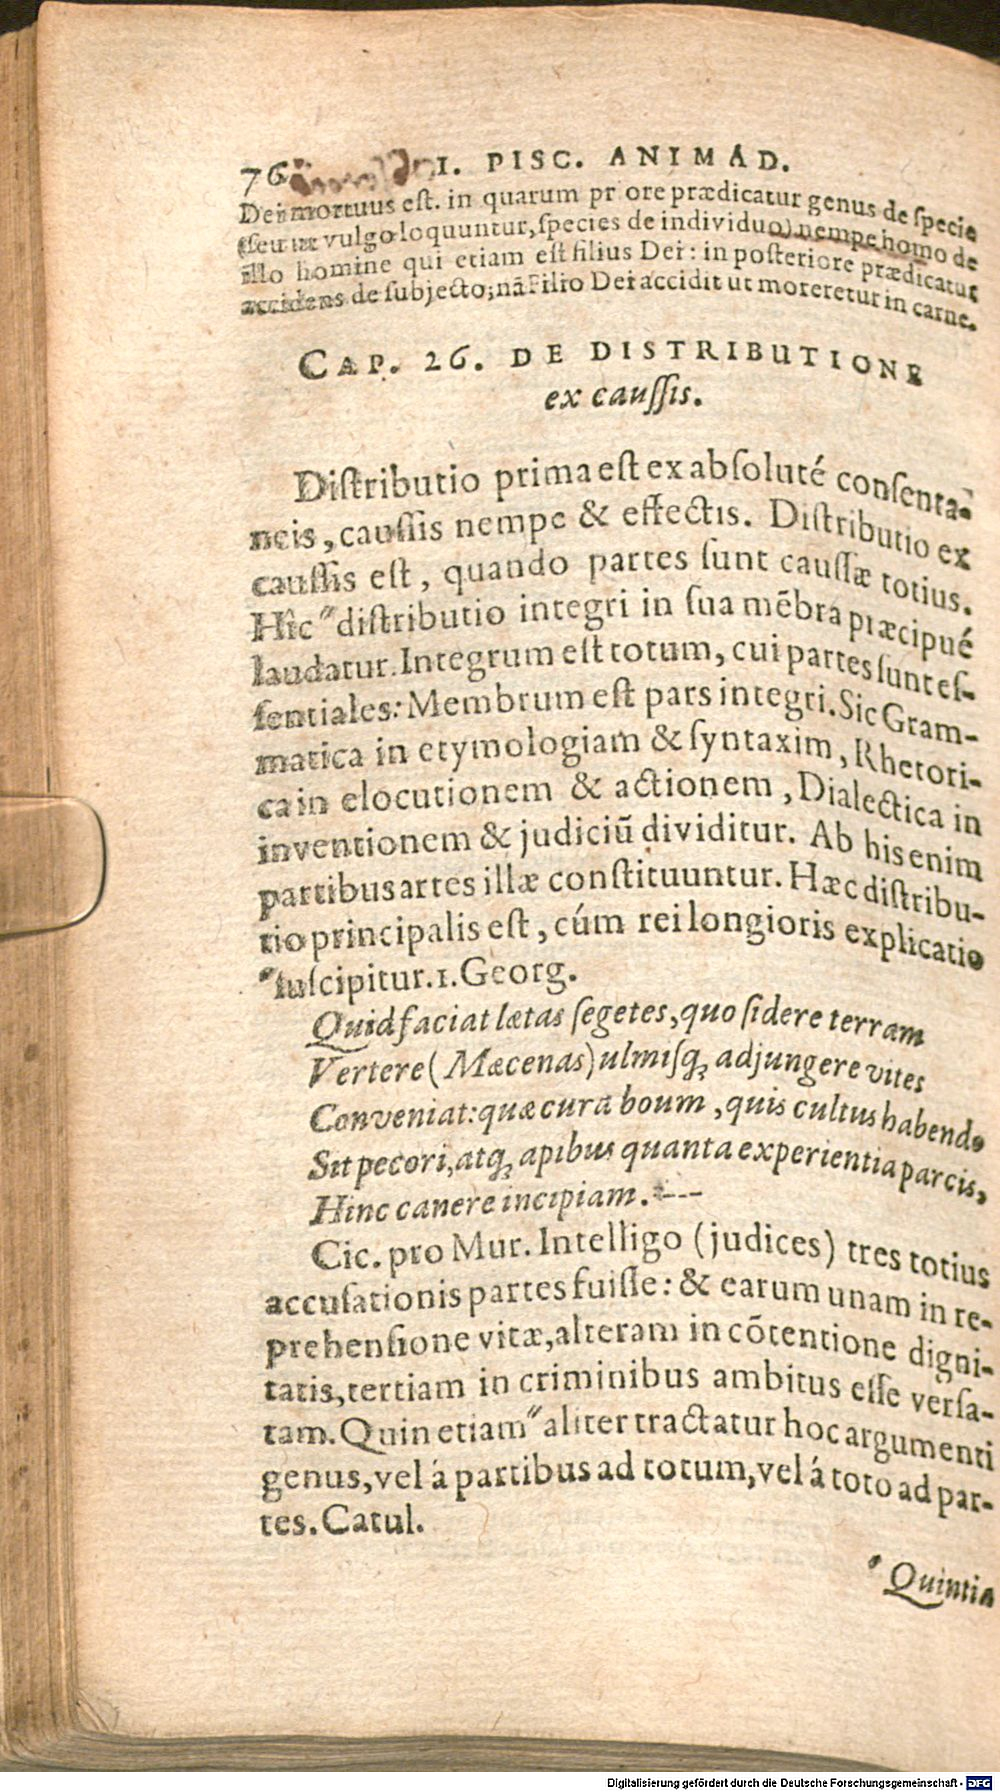 76 I. PISC. ANIMAD.
Dei mortuus est. in quarum priore prædicatur genus de specie
(seu ut vulgo loquuntur, species de individuo) nempe homo de
illo homine qui etiam est filius Dei: in posteriore prædicatur
accidens de subjecto; nā Filio Dei accidit ut moreretur in carne.
CAP. 26. DE DISTRIBUTIONE
ex caussis.
Distributio prima est ex absoluté consenta-
neis, caussis nempe & effectis. Distributio ex
caussis est, quando partes sunt caussæ totius.
Hîc " distributio integri in sua mēbra præcipué
laudatur. Integrum est totum, cui partes sunt es-
sentiales: Membrum est pars integri. Sic Gram-
matica in etymologiam & syntaxim, Rhetori-
ca in elocutionem & actionem, Dialectica in
inventionem & judiciū dividitur. Ab his enim
partibus artes illæ constituuntur. Hæc distribu-
tio principalis est, cúm rei longioris explicatio
" suscipitur. 1. Georg.
Quid faciat lætas segetes, quo sidere terram
Vertere (Mæcenas) ulmisq; adjungere vites
Conveniat: quæ cura boum, quis cultus habendo
Sit pecori, atq; apibus quanta experientia parcis,
Hinc canere incipiam. ---
Cic. pro Mur. Intelligo (judices) tres totius
accusationis partes fuisse: & earum unam in re-
prehensione vitæ, alteram in cōtentione digni-
tatis, tertiam in criminibus ambitus esse versa-
tam. Quin etiam " aliter tractatur hoc argumenti
genus, vel á partibus ad totum, vel á toto ad par-
tes. Catul.
" Quintia
Digitalisierung gefördert durch die Deutsche Forschungsgemeinschaft - DFG